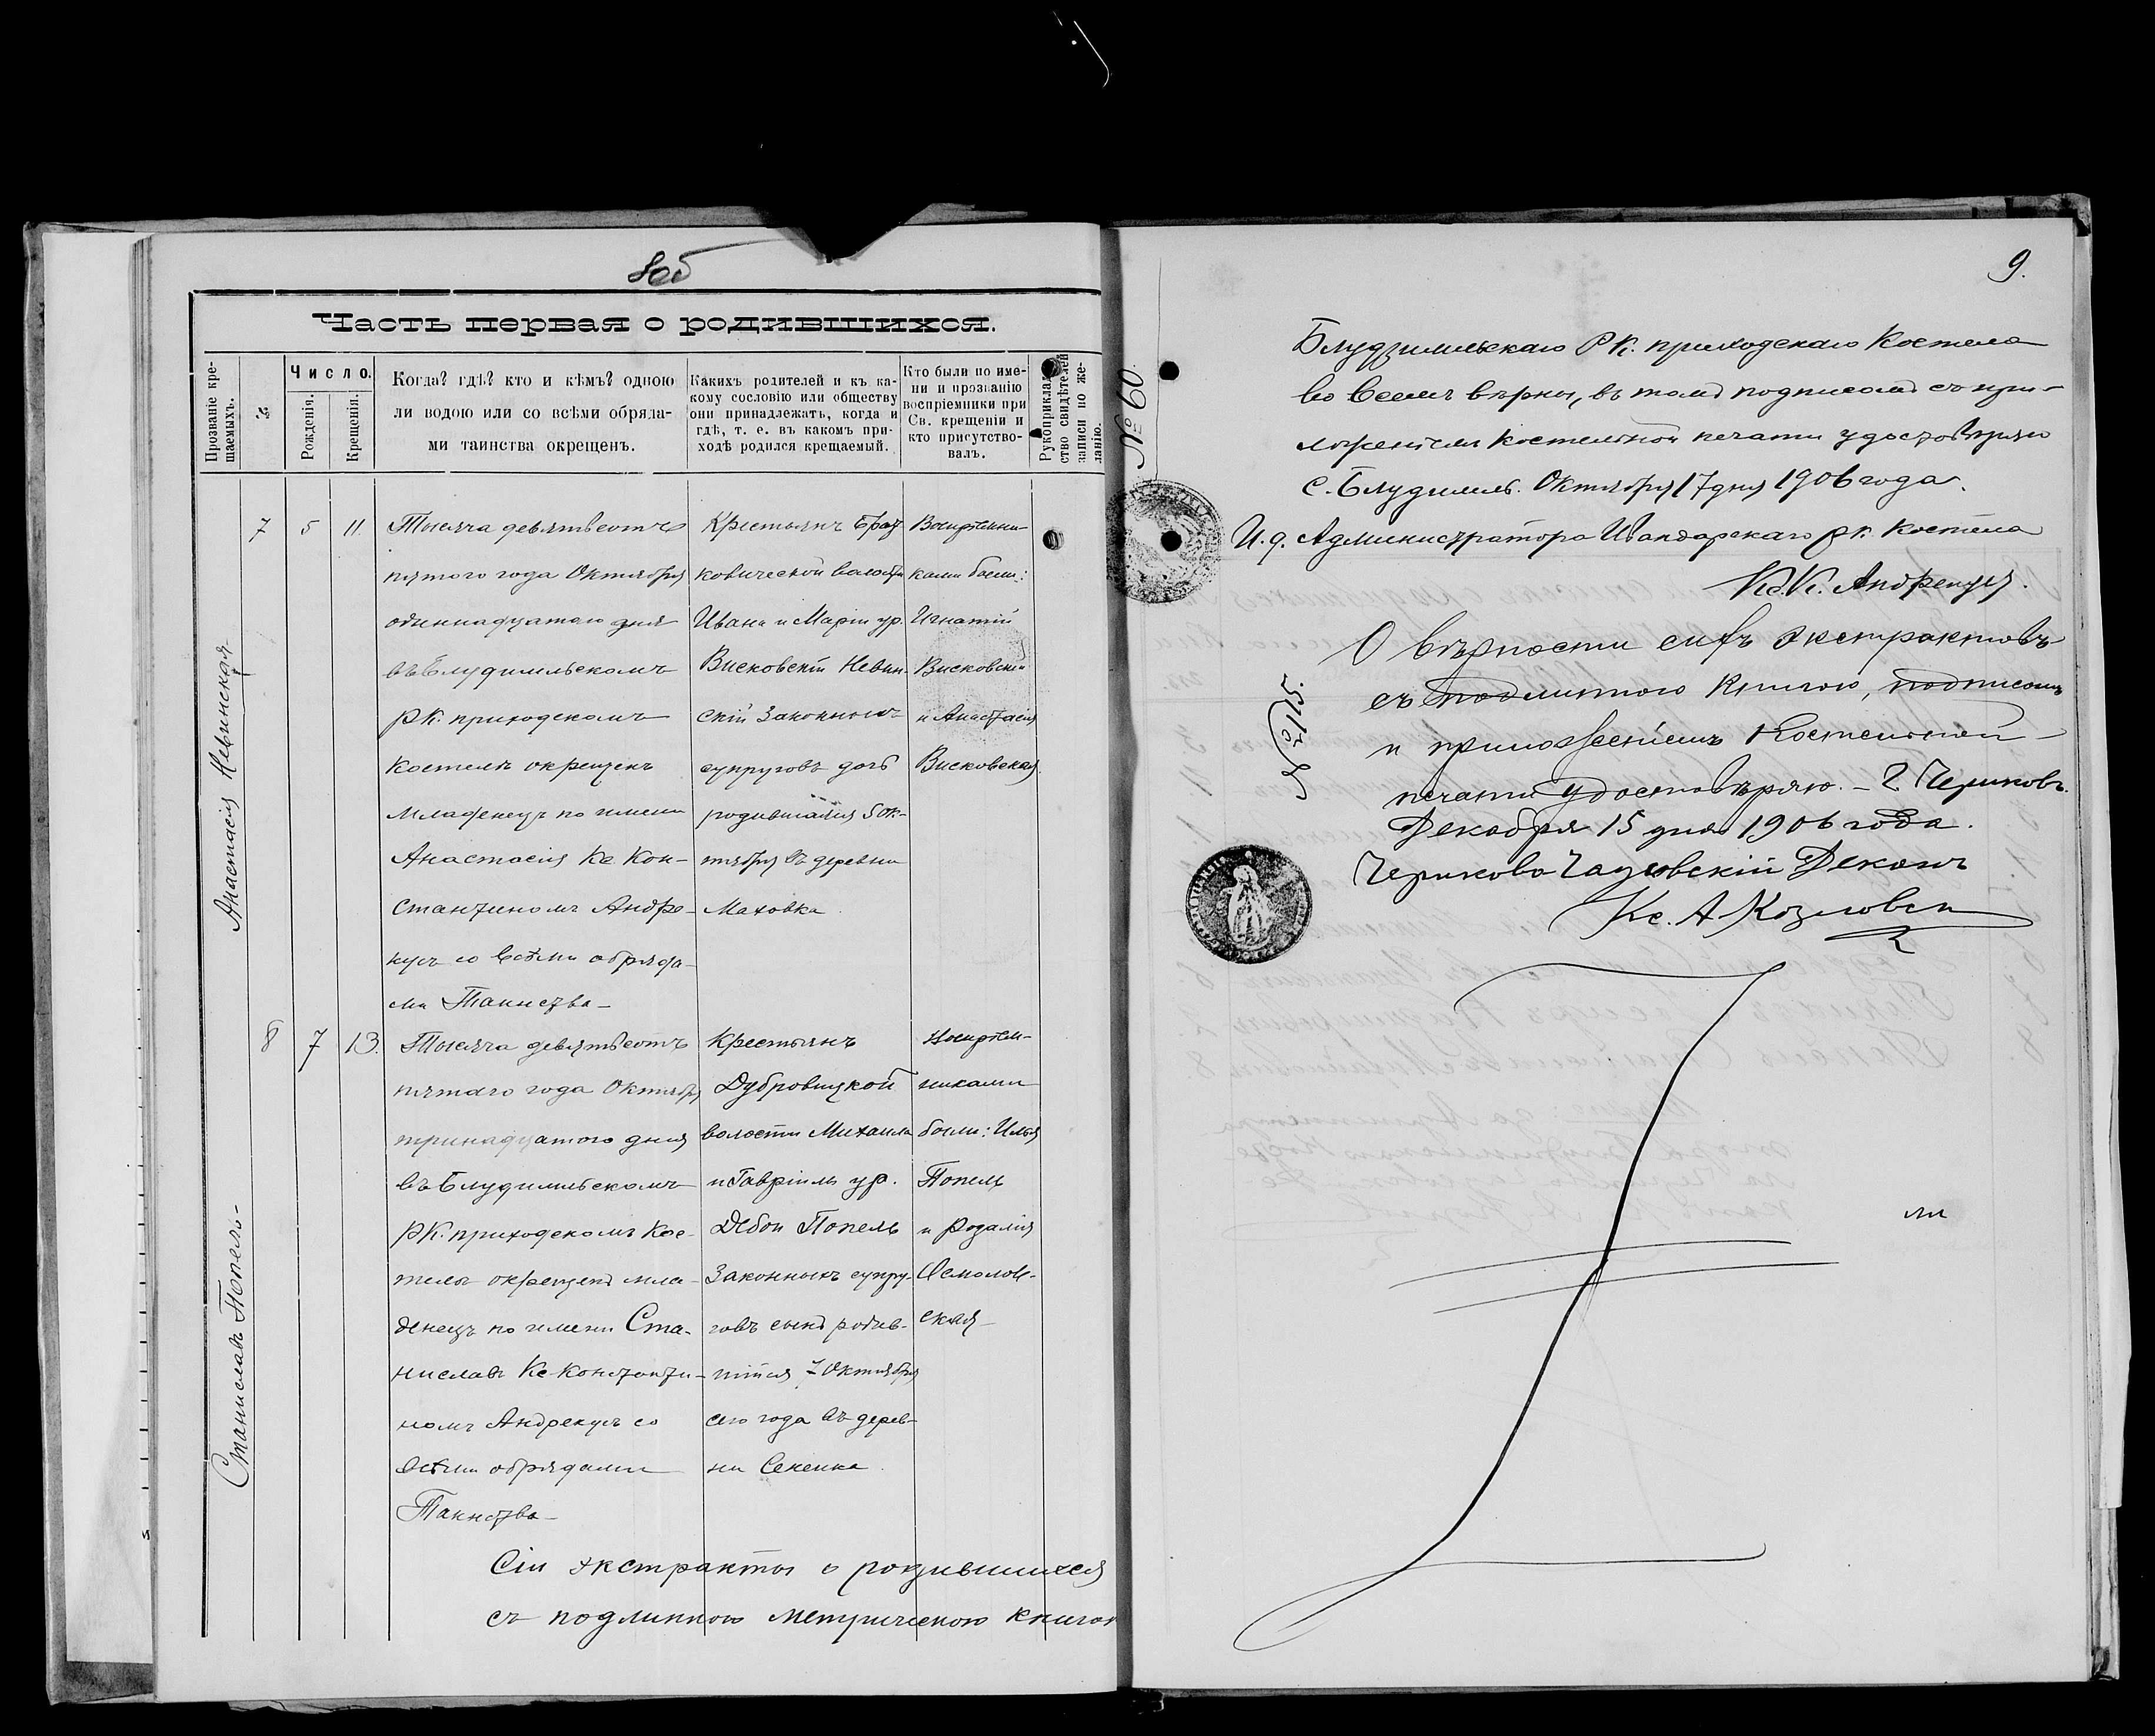 8об
Часть первая о родившихся.
Прозваніе кре-
щаемыхъ.
№
Число.
Рожденія.
Крещенія.
Когда? гдѣ? кто и кѣмъ? одною
ли водою или со всѣми обряда-
ми таинства окрещенъ.
Какихъ родителей и къ ка-
кому сословію или обществу
они принадлежатъ, когда и
гдѣ, т. е. въ какомъ при-
ходѣ родился крещаемый.
Кто были по име-
ни и прозванію
воспріемники при
Св. крещеніи и
кто присутство-
валъ.
Рукоприклад
ство свидѣтелей
записи по же-
ланію.
Анастасія Невинская
7
5
11.
Тысяча девятьсотъ
пятого года Октября
одиннадцатаго дня
въ Блудимильскомъ
РК. приходскомъ
Костелѣ окрещенъ
младенецъ по имени
Анастасія Кс Кон-
стантиномъ Андре-
кусъ со всѣми обряда-
ми Таинства –
Крестьянъ
ковической волости
Ивана и Маріи ур.
Висковскій Невин-
скій Законныхъ
супруговъ дочь
родившаяся 5 Ок-
тября въ деревни
Маховка
Воспріемни-
ками были:
Игнатій
Висковскій
и Анастасія
Висковская
Станиславъ Попель-
8
7
13.
Тысяча девятьсотъ
пятаго года Октября
тринадцатого дня
въ Блудимильскомъ
РК. приходскомъ Кос-
телѣ окрещенъ мла-
денецъ по имени Ста-
ниславъ Кс Константи-
номъ Андрекусъ со
всѣми обрядами
Таинства –
Крестьянъ
Дубровицкой
волости Михаила
и Гавріилы ур.
Попель
Законныхъ супру-
говъ сынъ родив-
шійся 7 Октября
сего года въ дерев-
ни Сененка
Воспріем-
никами
были: Илья
Попель
и Розалія
Осмолов-
ская –
Сіи экстракты о родившихся
съ подлинною метрическою книгою
№ 60.
9.
Блудзимильскаго РК. приходскаго Костела
во всемъ вѣрны, въ томъ подписомъ съ при-
ложеніемъ костельной печати удостовѣряю
С. Блудимиль. Октября 17 дня 1906 года.
И. д. Администратора РК. Костела
Кс. К. Андрекусъ.
О вѣрности сихъ экстрактовъ
съ подлинною Книгою, подписомъ
и приложеніемъ Костельной
печати удостовѣряю. – г Чериковъ.
Декабря 15 дня 1906 года.
Чериково Чаусовскій Деканъ
Кс. А Козловск